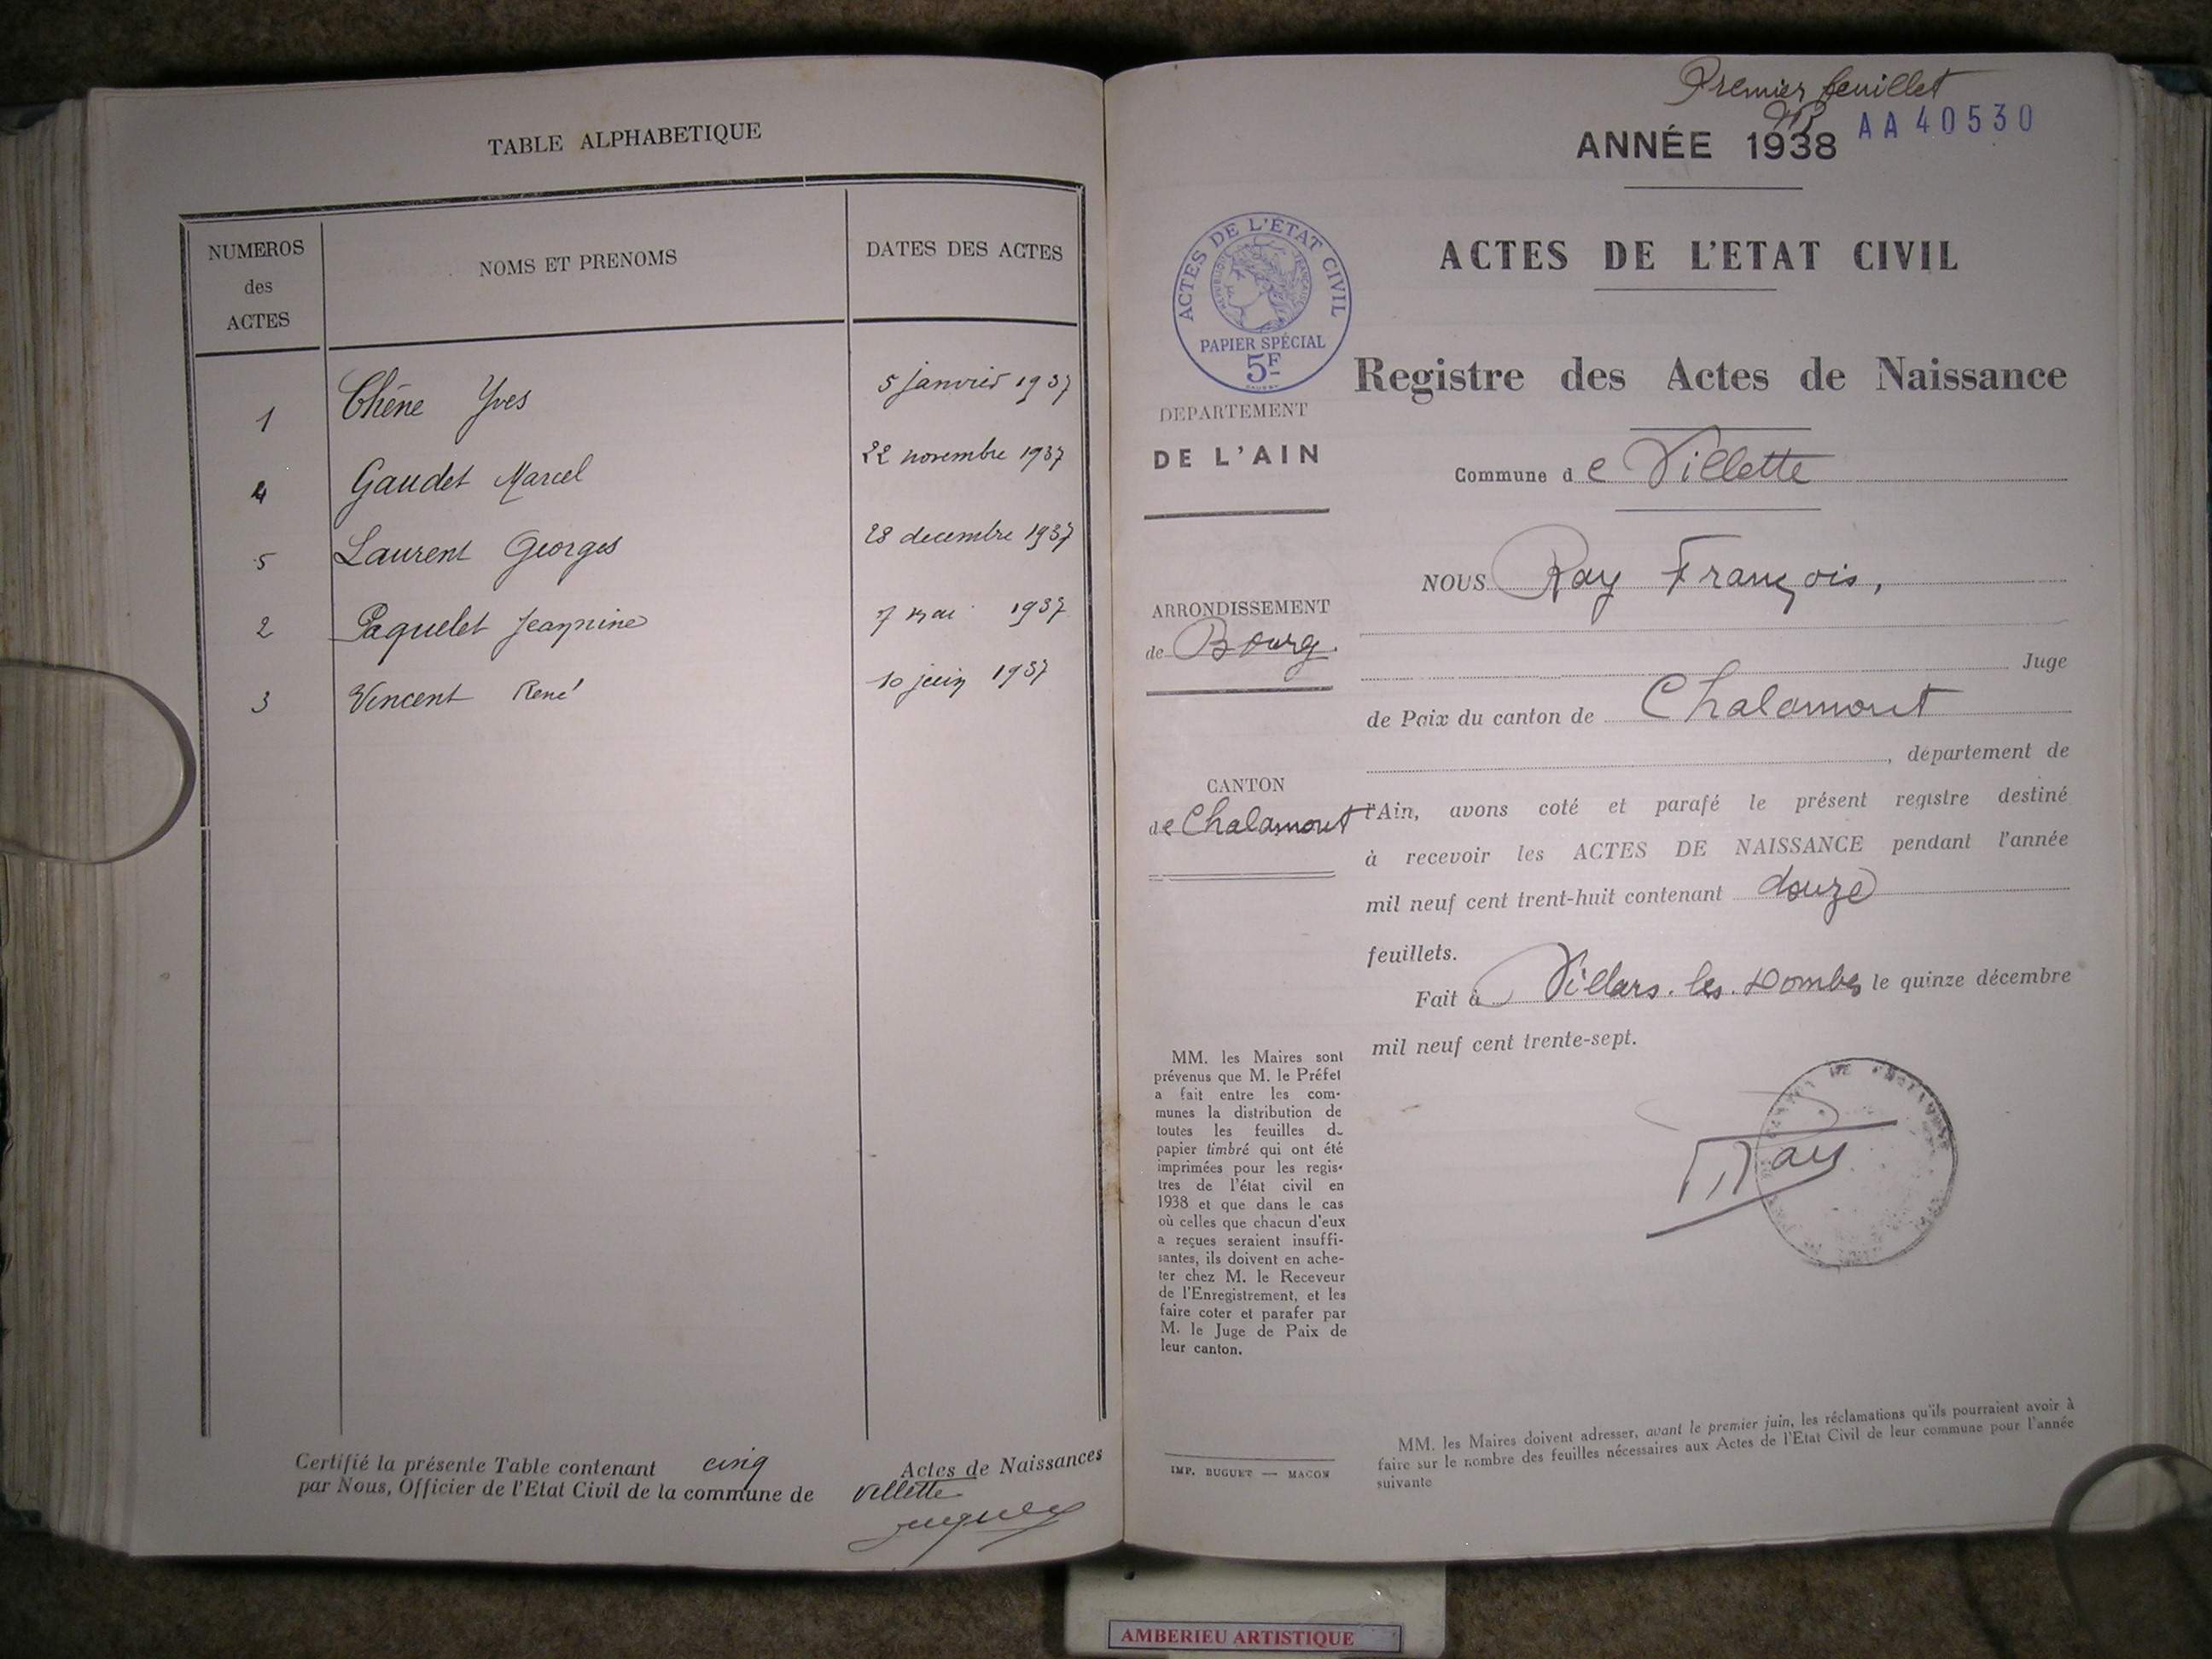 TABLE ALPHABETIQUE
NUMEROS des ACTES NOMS ET PRENOMS DATES DES ACTES
1 Chêne Yves 5 janvier 1937
4 Gaudet Marcel 22 novembre 1937
5 Laurent Georges 28 decembre 1937
2 Paquelet Jeannine 7 mai 1937
3 Vincent René 10 juin 1937
Certifié la présente Table contenant cinq Actes de Naissances
par Nous, Officier de l'Etat Civil de la commune de Villette
Premier feuillet
ANNÉE 1938 AA 40530
ACTES DE L'ETAT CIVIL
ACTES DE L'ÉTAT CIVIL
RÉPUBLIQUE FRANÇAISE
PAPIER SPÉCIAL
5F
Registre des Actes de Naissance
DEPARTEMENT
DE L'AIN
Commune de Villette
ARRONDISSEMENT
de Bourg.
CANTON
de Chalamont
NOUS Ray François,
Juge
de Paix du canton de Chalamont
, département de
l'Ain, avons coté et parafé le présent registre destiné
à recevoir les ACTES DE NAISSANCE pendant l'année
mil neuf cent trent-huit contenant douze
feuillets.
Fait à Villars. les. Dombes le quinze décembre
mil neuf cent trente-sept.
Ray
MM. les Maires sont
prévenus que M. le Préfet
a fait entre les com-
munes la distribution de
toutes les feuilles de
papier timbré qui ont été
imprimées pour les regis-
tres de l'état civil en
1938 et que dans le cas
où celles que chacun d'eux
a reçues seraient insuffi-
santes, ils doivent en ache-
ter chez M. le Receveur
de l'Enregistrement, et les
faire coter et parafer par
M. le Juge de Paix de
leur canton.
IMP. BUGUET — MACON
MM. les Maires doivent adresser, avant le premier juin, les réclamations qu'ils pourraient avoir à
faire sur le nombre des feuilles nécessaires aux Actes de l'Etat Civil de leur commune pour l'année
suivante
AMBERIEU ARTISTIQUE